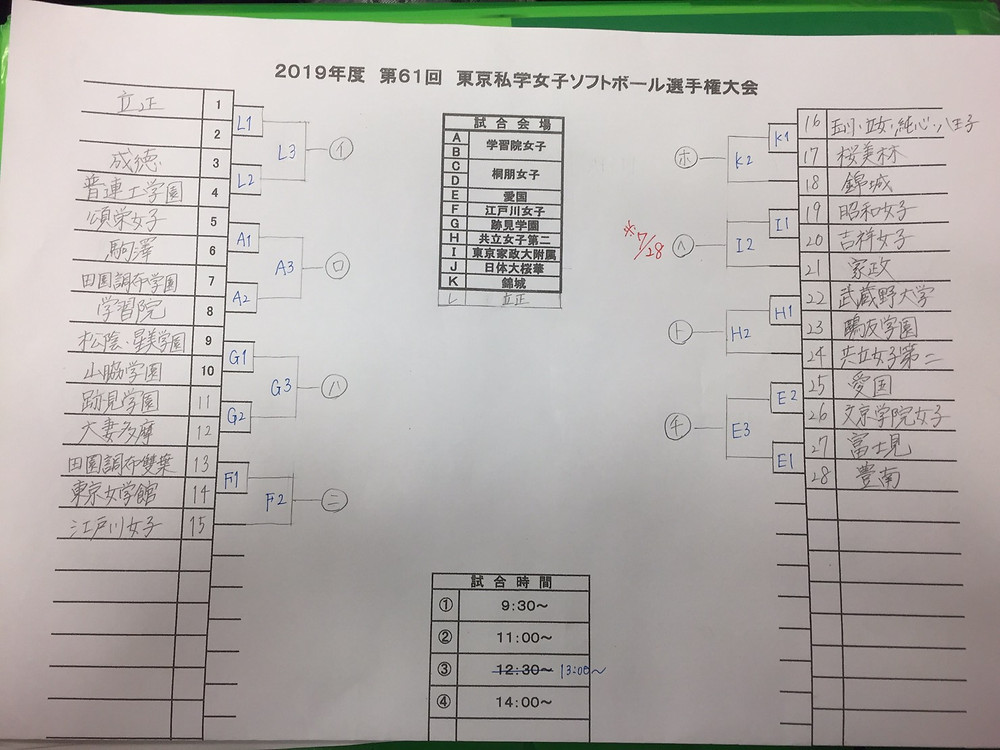 2019年度 第61回 東京私学女子ソフトボール選手権大会
立正 1
2
成徳 3
普連土学園 4
頌栄女子 5
駒澤 6
田園調布学園 7
学習院 8
松陰・星美学園 9
山脇学園 10
跡見学園 11
大妻多摩 12
田園調布雙葉 13
東京女学館 14
江戸川女子 15
L1
L2
L3
イ
A1
A2
A3
ロ
G1
G2
G3
ハ
F1
F2
ニ
試合会場
A
B
学習院女子
C
D
桐朋女子
E 愛国
F 江戸川女子
G 跡見学園
H 共立女子第二
I 東京家政大附属
J 日体大桜華
K 錦城
L 立正
ホ
K2
K1
※7/28
ヘ
I2
I1
ト
H2
H1
チ
E3
E2
E1
16 玉川・立女・純心・八王子
17 桜美林
18 錦城
19 昭和女子
20 吉祥女子
21 家政
22 武蔵野大学
23 鷗友学園
24 共立女子第二
25 愛国
26 文京学院女子
27 富士見
28 豊南
試合時間
① 9:30～
② 11:00～
③ 12:30～ 13:00～
④ 14:00～